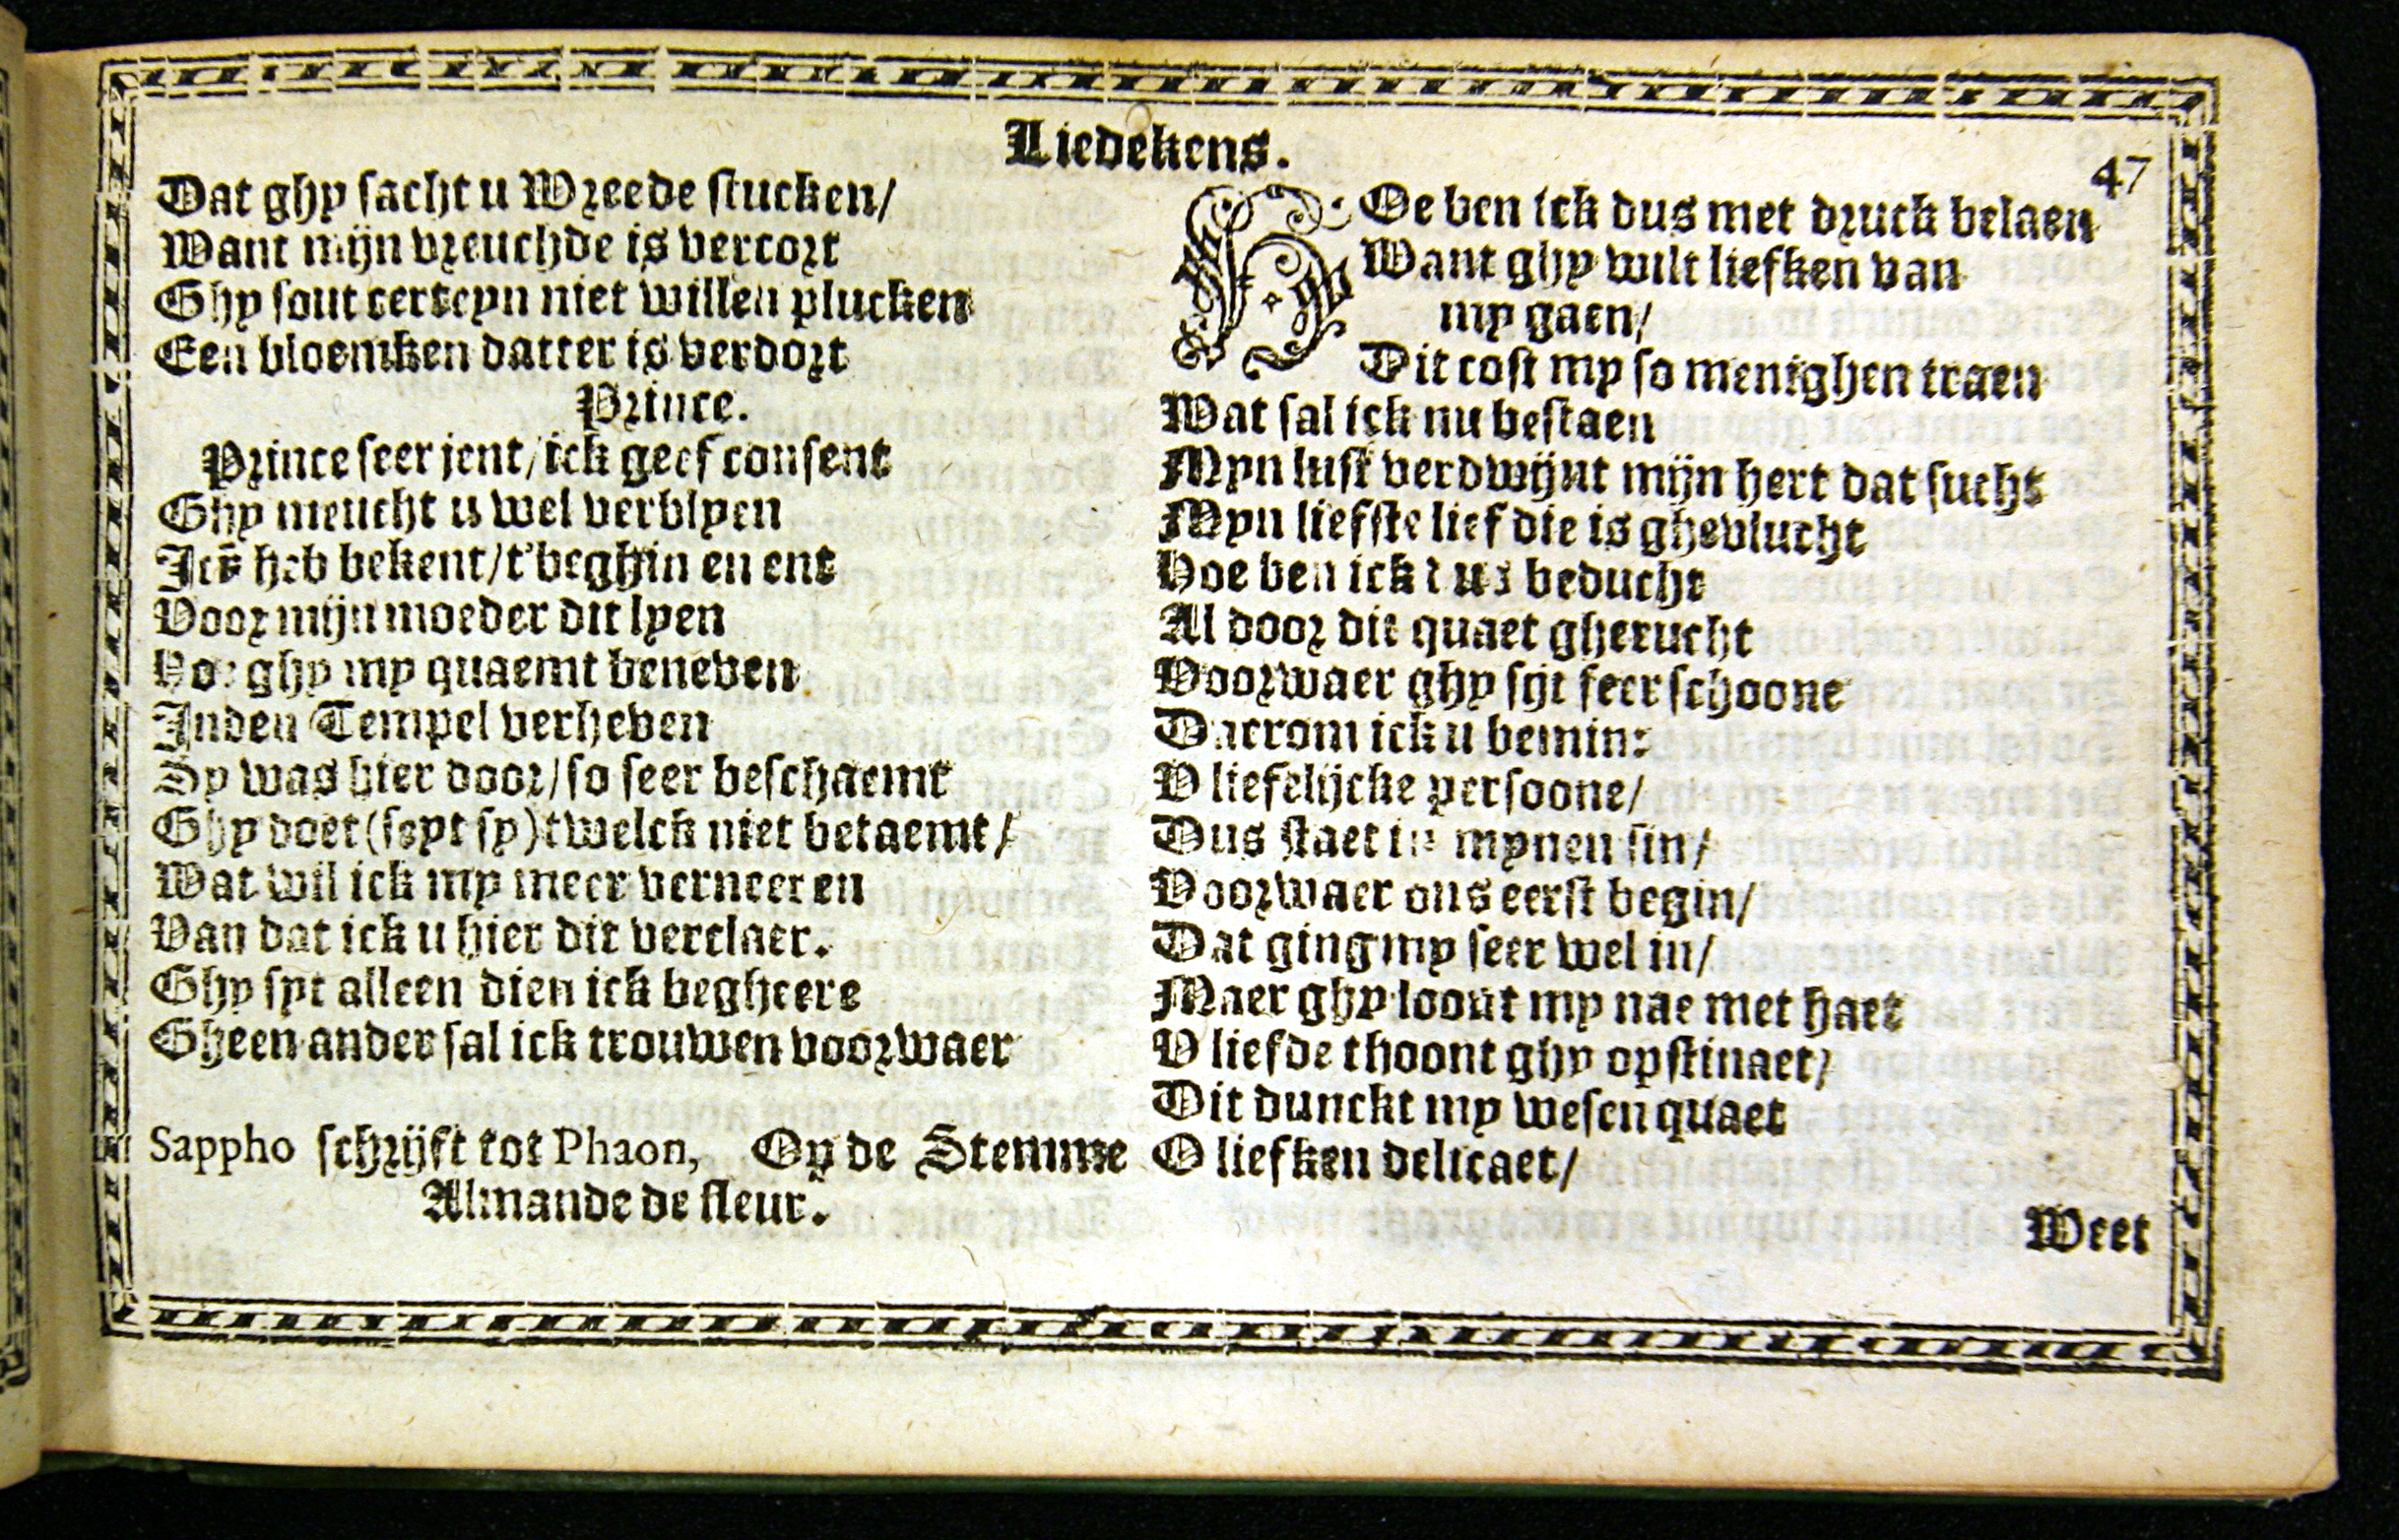 Liedekens.
47
Dat ghy sacht u Wreede stucken/
Want mijn vreuchde is vercort
Ghy sout certeyn niet willen plucken
Een bloemken datter is verdort
Prince.
Prince seer jent/ick geef consent
Ghy meucht u wel verblyen
heb bekent/t'beghin en ent
Voor mijn moeder dit lyen
Hoe ghy my quaemt beneven
Inden Tempel verheven
Sy was hier door/so seer beschaemt
Ghy doet (seyt sy) twelck niet betaemt/
Wat wil ick my meer verneeren
Van dat ick u hier dit verclaer.
Ghy syt alleen dien ick begheere
Gheen ander sal ick trouwen voorwaer
Sappho schrijft tot Phaon, Op de Stemme
Almande de fleur.
HOe ben ick dus met druck belaen
Want ghy wilt liefken van
my gaen/
Dit cost my so menighen traen
Wat sal ick nu bestaen
Myn lust verdwijnt mijn hert dat sucht
Myn liefste lief die is ghevlucht
Hoe ben ick dus beducht
Al door dit quaet gherucht
Voorwaer ghy sijt seer schoone
Daerom ick u bemin:
V liefelijcke persoone/
Dus staet in mynen sin/
Voorwaer ons eerst begin/
Dat ging my seer wel in/
Maer ghy loont my nae met haet
V liefde thoont ghy opstinaet/
Dit dunckt my wesen quaet
O liefken delicaet/
Weet